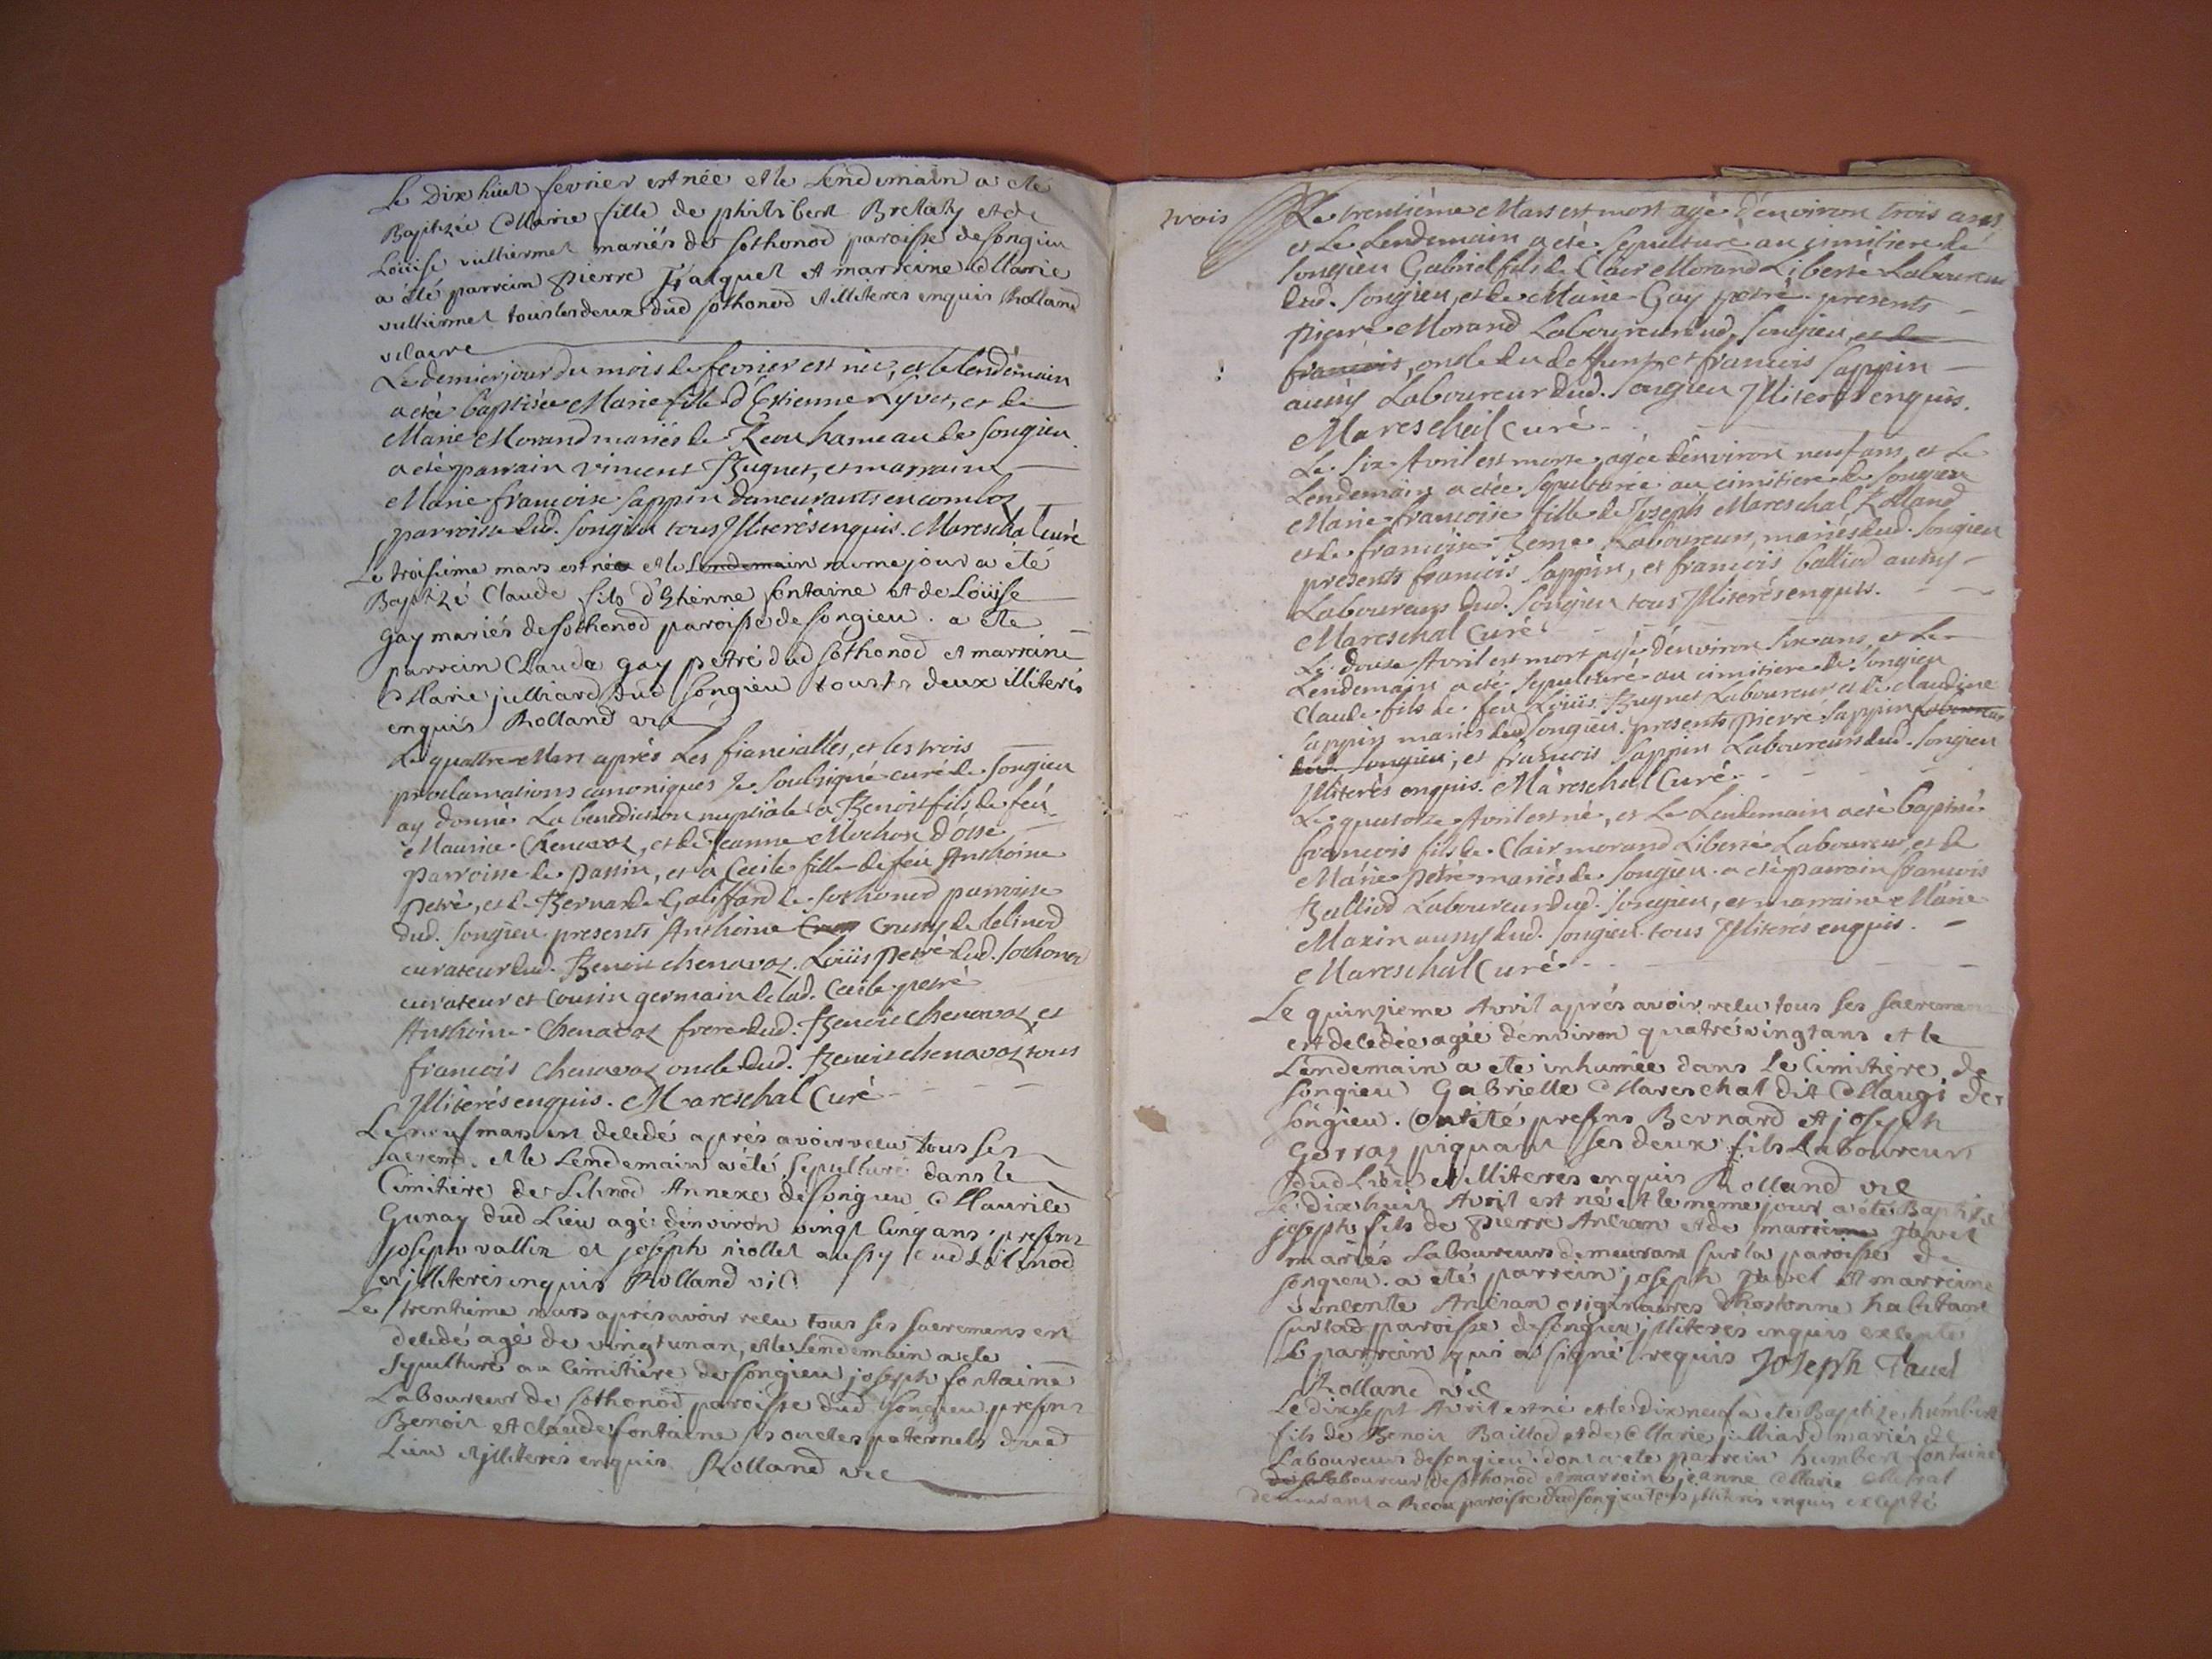 Le Dix huit fevrier est née et le Lendemain a ete
Baptizée Marie fille de philibert Bretaty et de
Loüise vulliermet mariés de Sothonod paroisse de songieu
a été parrein Pierre et marreine Marie
vulliermet tous les deux dud sothonod et illiteres enquis Rolland
vicaire
Le dernier jour du mois de fevrier est neé, et le lendemain
a eté baptisée Marie fille d'Estienne Lyvet, et de
Marie Morand mariés de Reou hameau de songieu
a eté parrain vincent Bugnet, et marraine
Marie francoise sappin demeurants en
parroisse dud. songieu tous Illiterés enquis. Mareschal curé
Le troisieme mars est né et le Lendemain meme jour a été
Baptizé Claude fils d'Etienne fontaine et de Loüise
gay mariés de sothonod paroisse de songieu. a ete
parrein Claude gay petré dud sothonod et marreine
Marie julliard dud songieu tous ts deux illiterés
enquis Rolland vic
Le quattre Mars aprés Les fiancialles, et les trois
proclamations canoniques Je soubsigné curé de songieu
ay donné La benediction nuptiale a Benoit fils de feu
Maurice Chenavaz, et de Jeanne Mochon d'ossé
parroisse de passin, et à Cecile fille de feu Anthoine
petré, et de Bernarde Goliffard de sothonod parroisse
dud. songieu presents Anthoine de lelinod
curateur dud. Benoit chenavaz. Loüis petré dud. sothonod
curateur et cousin germain de lad. Cecile petré
Anthoine Chenavaz frere dud. Benoit Chenavaz, et
francois chenavaz oncle dud. Benoit chenavaz tous
Illiterés enquis. Mareschal Curé
Le neuf mars est decedé aprés avoir recu tous ses
sacrem. et le Lendemain a été sepulturé dans le
Cimitiere de Lilinod Annexe de songieu Maurice
Gunay dud Lieu agé d'environ vingt Cinq ans. presens
joseph vallin et joseph riollet aussy dud Lilinod
et illiterés enquis Rolland vic
Le trentieme mars aprés avoir recu tous ses sacremens est
decedé agé de vingt un an, et le Lendemain a ete
sepulturé au Cimitiere de songieu joseph fontaine
Laboureur de sothonod paroisse dud songieu. presens
Benoit et claude fontaine ses oncles paternels dud
Lieu et illiterés enquis Rolland vic
trois
Le trentiéme Mars est mort agé d'environ trois ans
et Le Lendemain a eté sepulturé au cimitiere de
songieu Gabriel fils de Clair Morand Liberté Laboureur
dud. songieu, et de Marie Gay petré. presents
pierre Morand Laboureur dud. songieu et de
francois, oncle du deffunt, et francois sappin
aussy Laboureur dud. songieu Illiterés enquis.
Mareschal curé
Le six Avril est morte agée d'environ neuf ans, et Le
Lendemain a etée sepulturée au cimitiere de songieu
Marie francoise fille de Joseph Mareschal Rolland
et de francoise Laboureurs, mariés dud. songieu
presents francois sappin, et francois balliod aussy
Laboureurs dud. songieu tous Illiterés enquis.
Mareschal Curé
Le douze Avril est mort agé d'environ six ans, et Le
Lendemain a eté sepulturé au cimitiere de songieu
Claude fils de feu Loüis Bugnet Laboureur et de claudine
sappin mariés dud songieu. presents pierre sappin Laboureur
dud. songieu, et francois sappin Laboureurs dud. songieu
Illiterés enquis. Mareschal Curé
Le quatorze Avril est né, et Le Lendemain a eté baptisé
francois fils de Clair morand Liberté Laboureur, et de
Marie petré mariés de songieu. a eté parrain francois
Balliod Laboureur dud. songieu, et marraine Marie
Maxin aussy dud. songieu tous Illiterés enquis.
Mareschal Curé
Le quinzieme Avril aprés avoir recu tous ses sacremens
est decedée agée d'environ quatre vingt ans et le
Lendemain a ete inhumée dans Le Cimitiere de
songieu Gabrielle Mareschal dit Maugi de
songieu. Ont été presens Bernard et joseph
Gerraz piquant ses deux fils Laboureurs
dud Lieu et illiterés enquis Rolland vic
Le dix huit Avril est né et le meme jour a été Baptizé
joseph fils de Pierre Ancian et de marreine Javel
mariés Laboureurs demeurant sur la paroisse de
songieu. a été parrein joseph Javel et marreine
vincente Ancian originaires d'hostonne habitant
sur lad paroisse de songieu illiterés enquis excepté
Le parrein qui a signé requis Joseph Tavel
Rolland vic
Le dix sept Avril est né et le dix neuf a ete Baptizé humbert
fils de Benoit Baillod et de Marie julliard mariés de
Laboureurs de songieu. dont a ete parrein humbert fontaine
de s Laboureur de sothonod et marreine jeanne Marie Metral
demeurant a Reou paroisse dud songieu tous illiterés enquis excepté